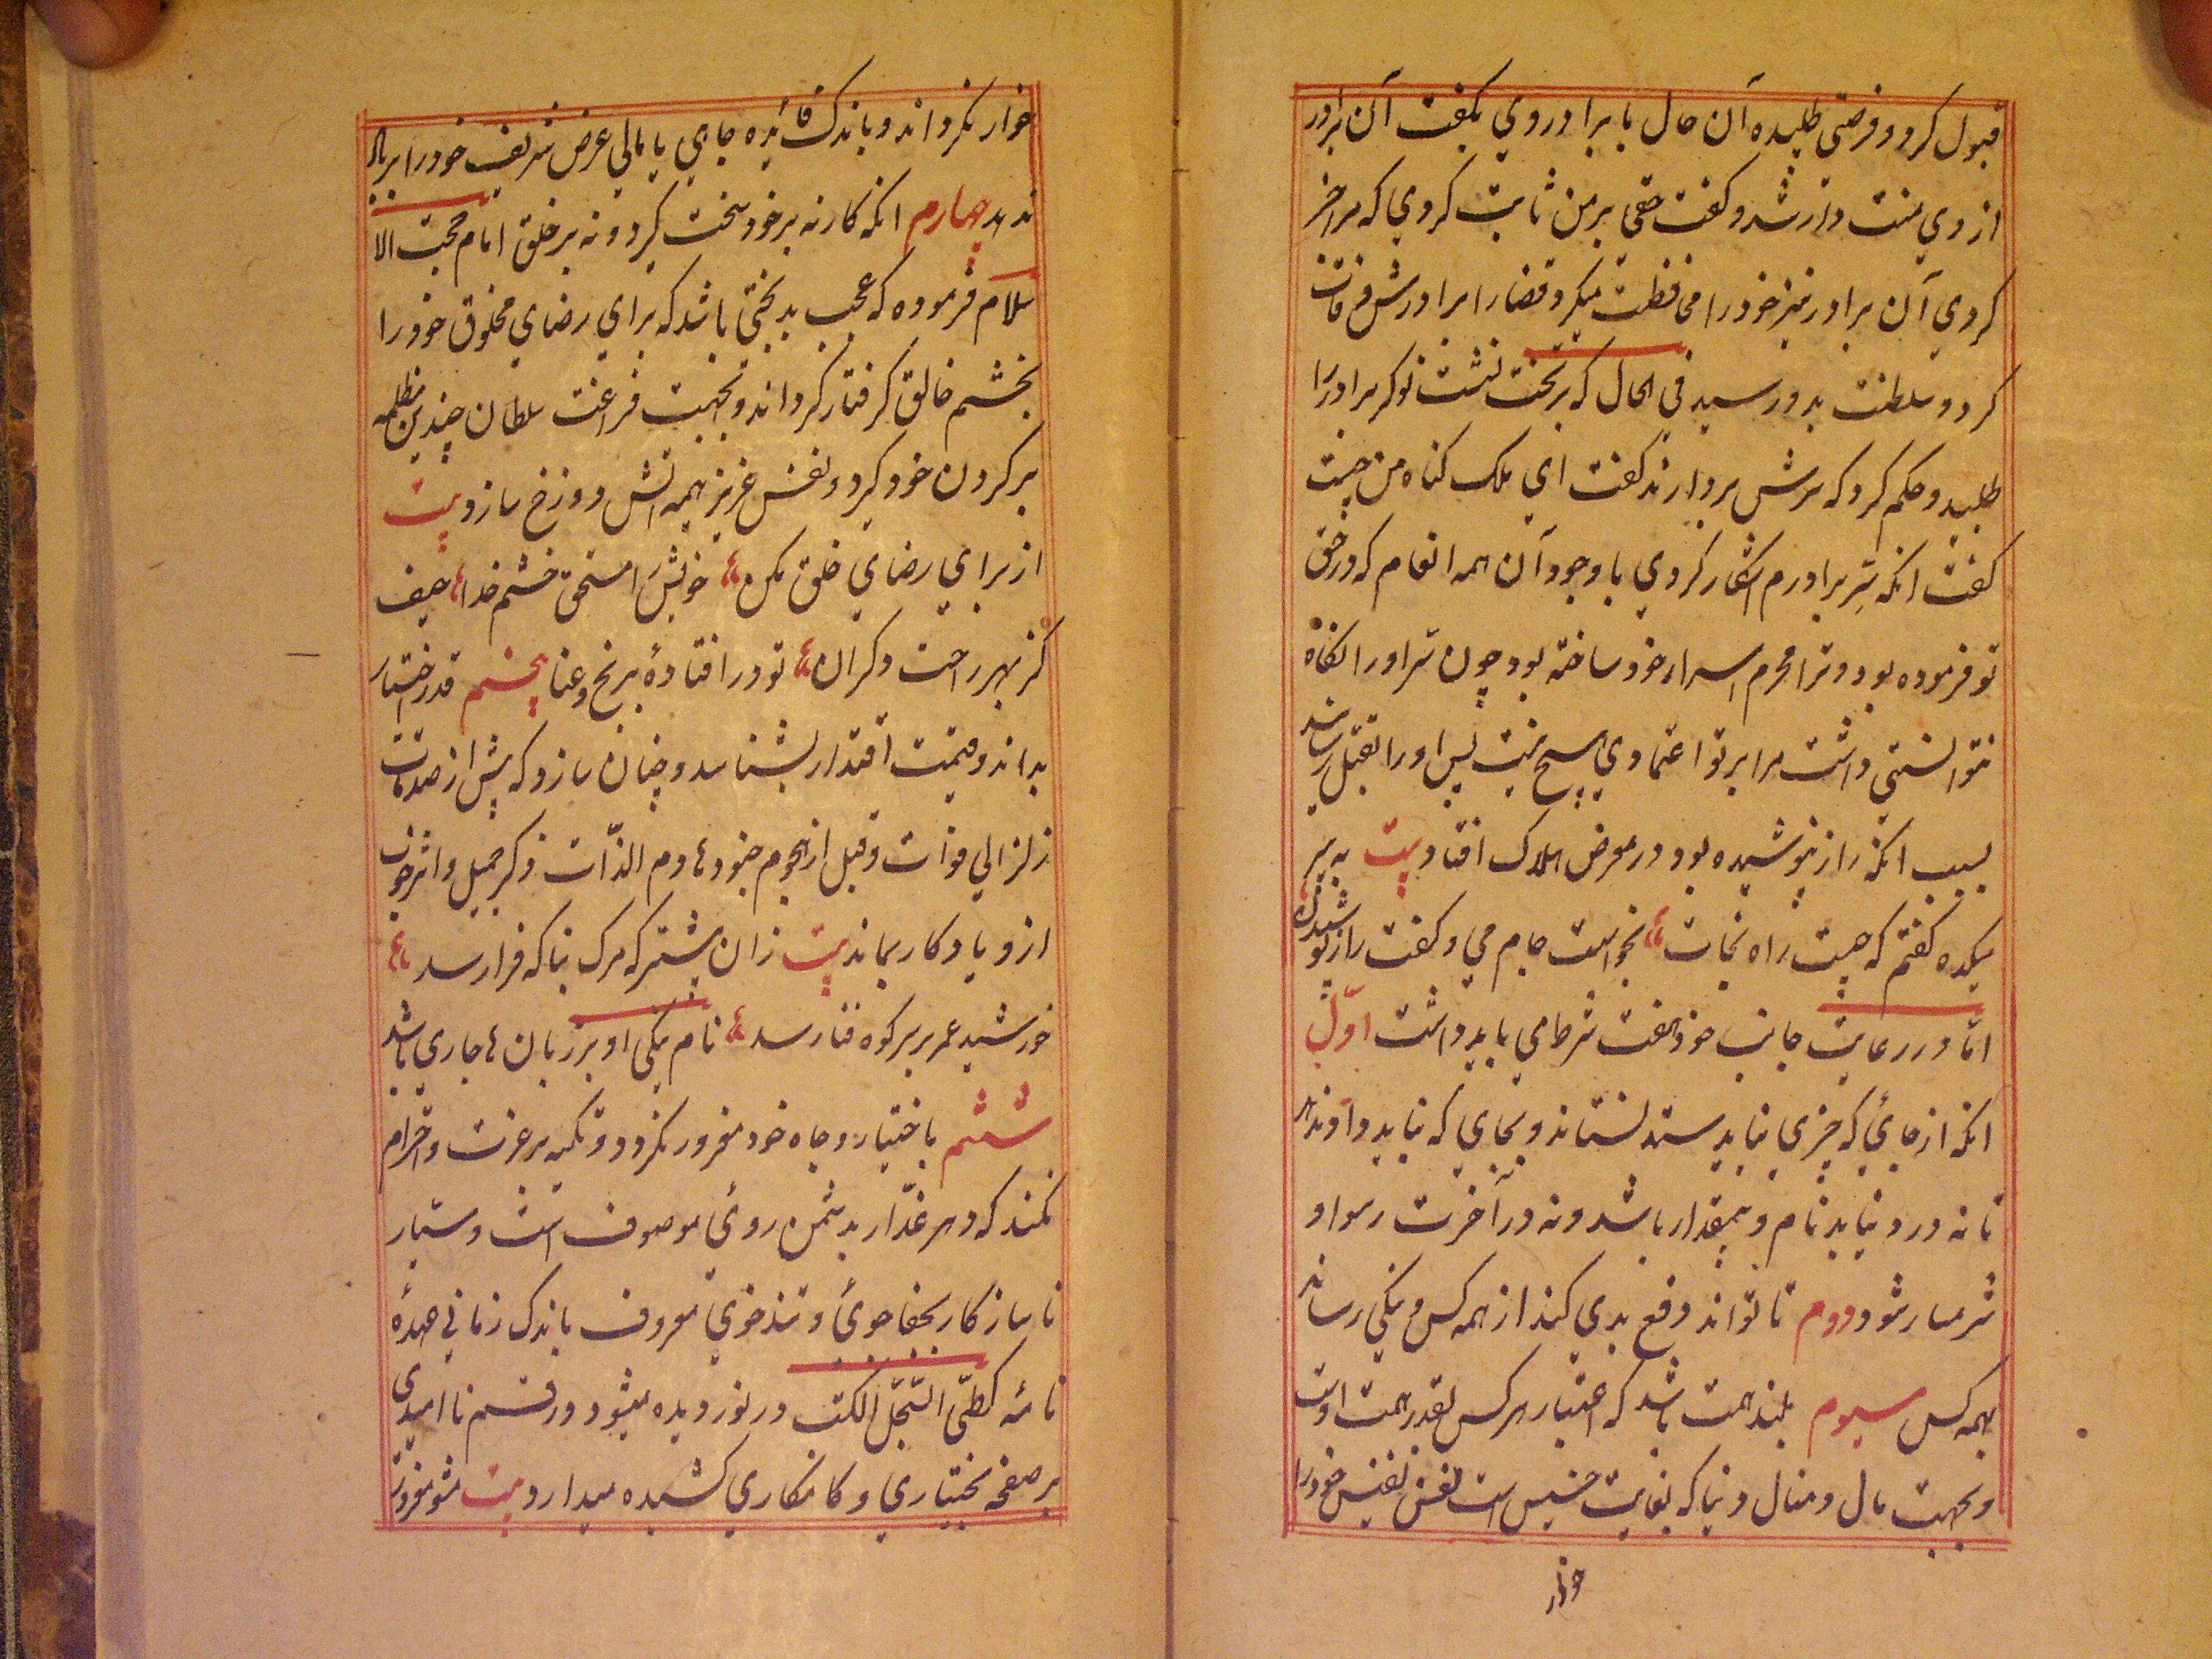 قبول کرد و فرصتی طلبیده آن حال با برادر وی بگفت آن برادر
از وی منت دار شد و گفت حقی بر من ثابت کردی که مرا خبر
کردی آن برادر نیز خود را محافظت میکرد قضارا برادرش وفات
کرد و سلطنت بدو رسید فی الحال که بر تخت نشست نوکر برادر را
طلبید و حکم کرد که سرش بردارند گفت ای ملک گناه من چیست
گفت انکه سِرّ برادرم آشکار کردی با وجود آن همه انعام که در حق
تو فرموده بود و ترا محرم اسرار خود ساخته بود چون سر او را نگاه
نتوانستی داشت مرا بر تو اعتمادی هیچ نیست پس او را بقتل رسانید
بسبب انکه راز نپوشیده بود در معرض هلاک افتاد بیت به پیر
میکده گفتم که چیست راه نجات بخواست جام می و گفت راز پوشیدن
امّا در رعایت جانب خود هفت شرط می باید داشت اوّل
انکه از جائی که چیزی نباید ستد نستاند و بجای که نباید داد ندهد
تا نه در دنیا بدنام و بیمقدار باشد و نه در آخرت رسوا و
شرمسار شود دوم تا تواند دفع بدی کند از همه کس و نیکی رساند
بهمه کس سیوم بلند همت باشد که اعتبار هر کس بقدر همت اوست
و بجهت مال و منال دنیا که بغایت خسیس است نفس نفیس خود را
خوار
خوار نگرداند و باندک فائده جاهی یا مالی عرض شریف خود را برباد
ندهد چهارم انکه کار نه بر خود سخت گیرد و نه بر خلق امام حجت الا
سلام فرموده که عجب بدبختی باشد که برای رضای مخلوق خود را
بخشم خالق گرفتار گرداند و بجهت فراغت سلطان چندین مظلمه
بر گردن خود گیرد و نفس عزیز هیمه آتش دوزخ سازد بیت
از برای رضای خلق مکن خویش را مستحق خشم خدا حیف
کز بهر راحت دگران تو در افتادۀ برنج و عنا پنجم قدر اختیار
بداند و قیمت اقتدار بشناسد و چنان سازد که پیش از صدمات
زلزالی فوات و قبل از هجوم جنود هادم الذّات ذکر جمیل و اثر خوب
ازو یادگار بماند بیت زان پیشتر که مرگ بناگه فرا رسد
خورشید عمر بر سر کوه فنا رسد نام نیکی او بر زبان ها جاری باشد
ششم باختیار و جاه خود مغرور نگردد و تکیه بر عزت و احترام
نکند که دهر غدّار بدشمن روئی موصوف است و سپهر
ناسازگار بجفا جوئی و تندخوی معروف باندک زمانی عهدۀ
نامه کطیّ السّجلّ للکتب در نوردیده میشود و رقم ناامیدی
بر صفحه بختیاری و کامکاری کشیده میدارد بیت مشو مغرور